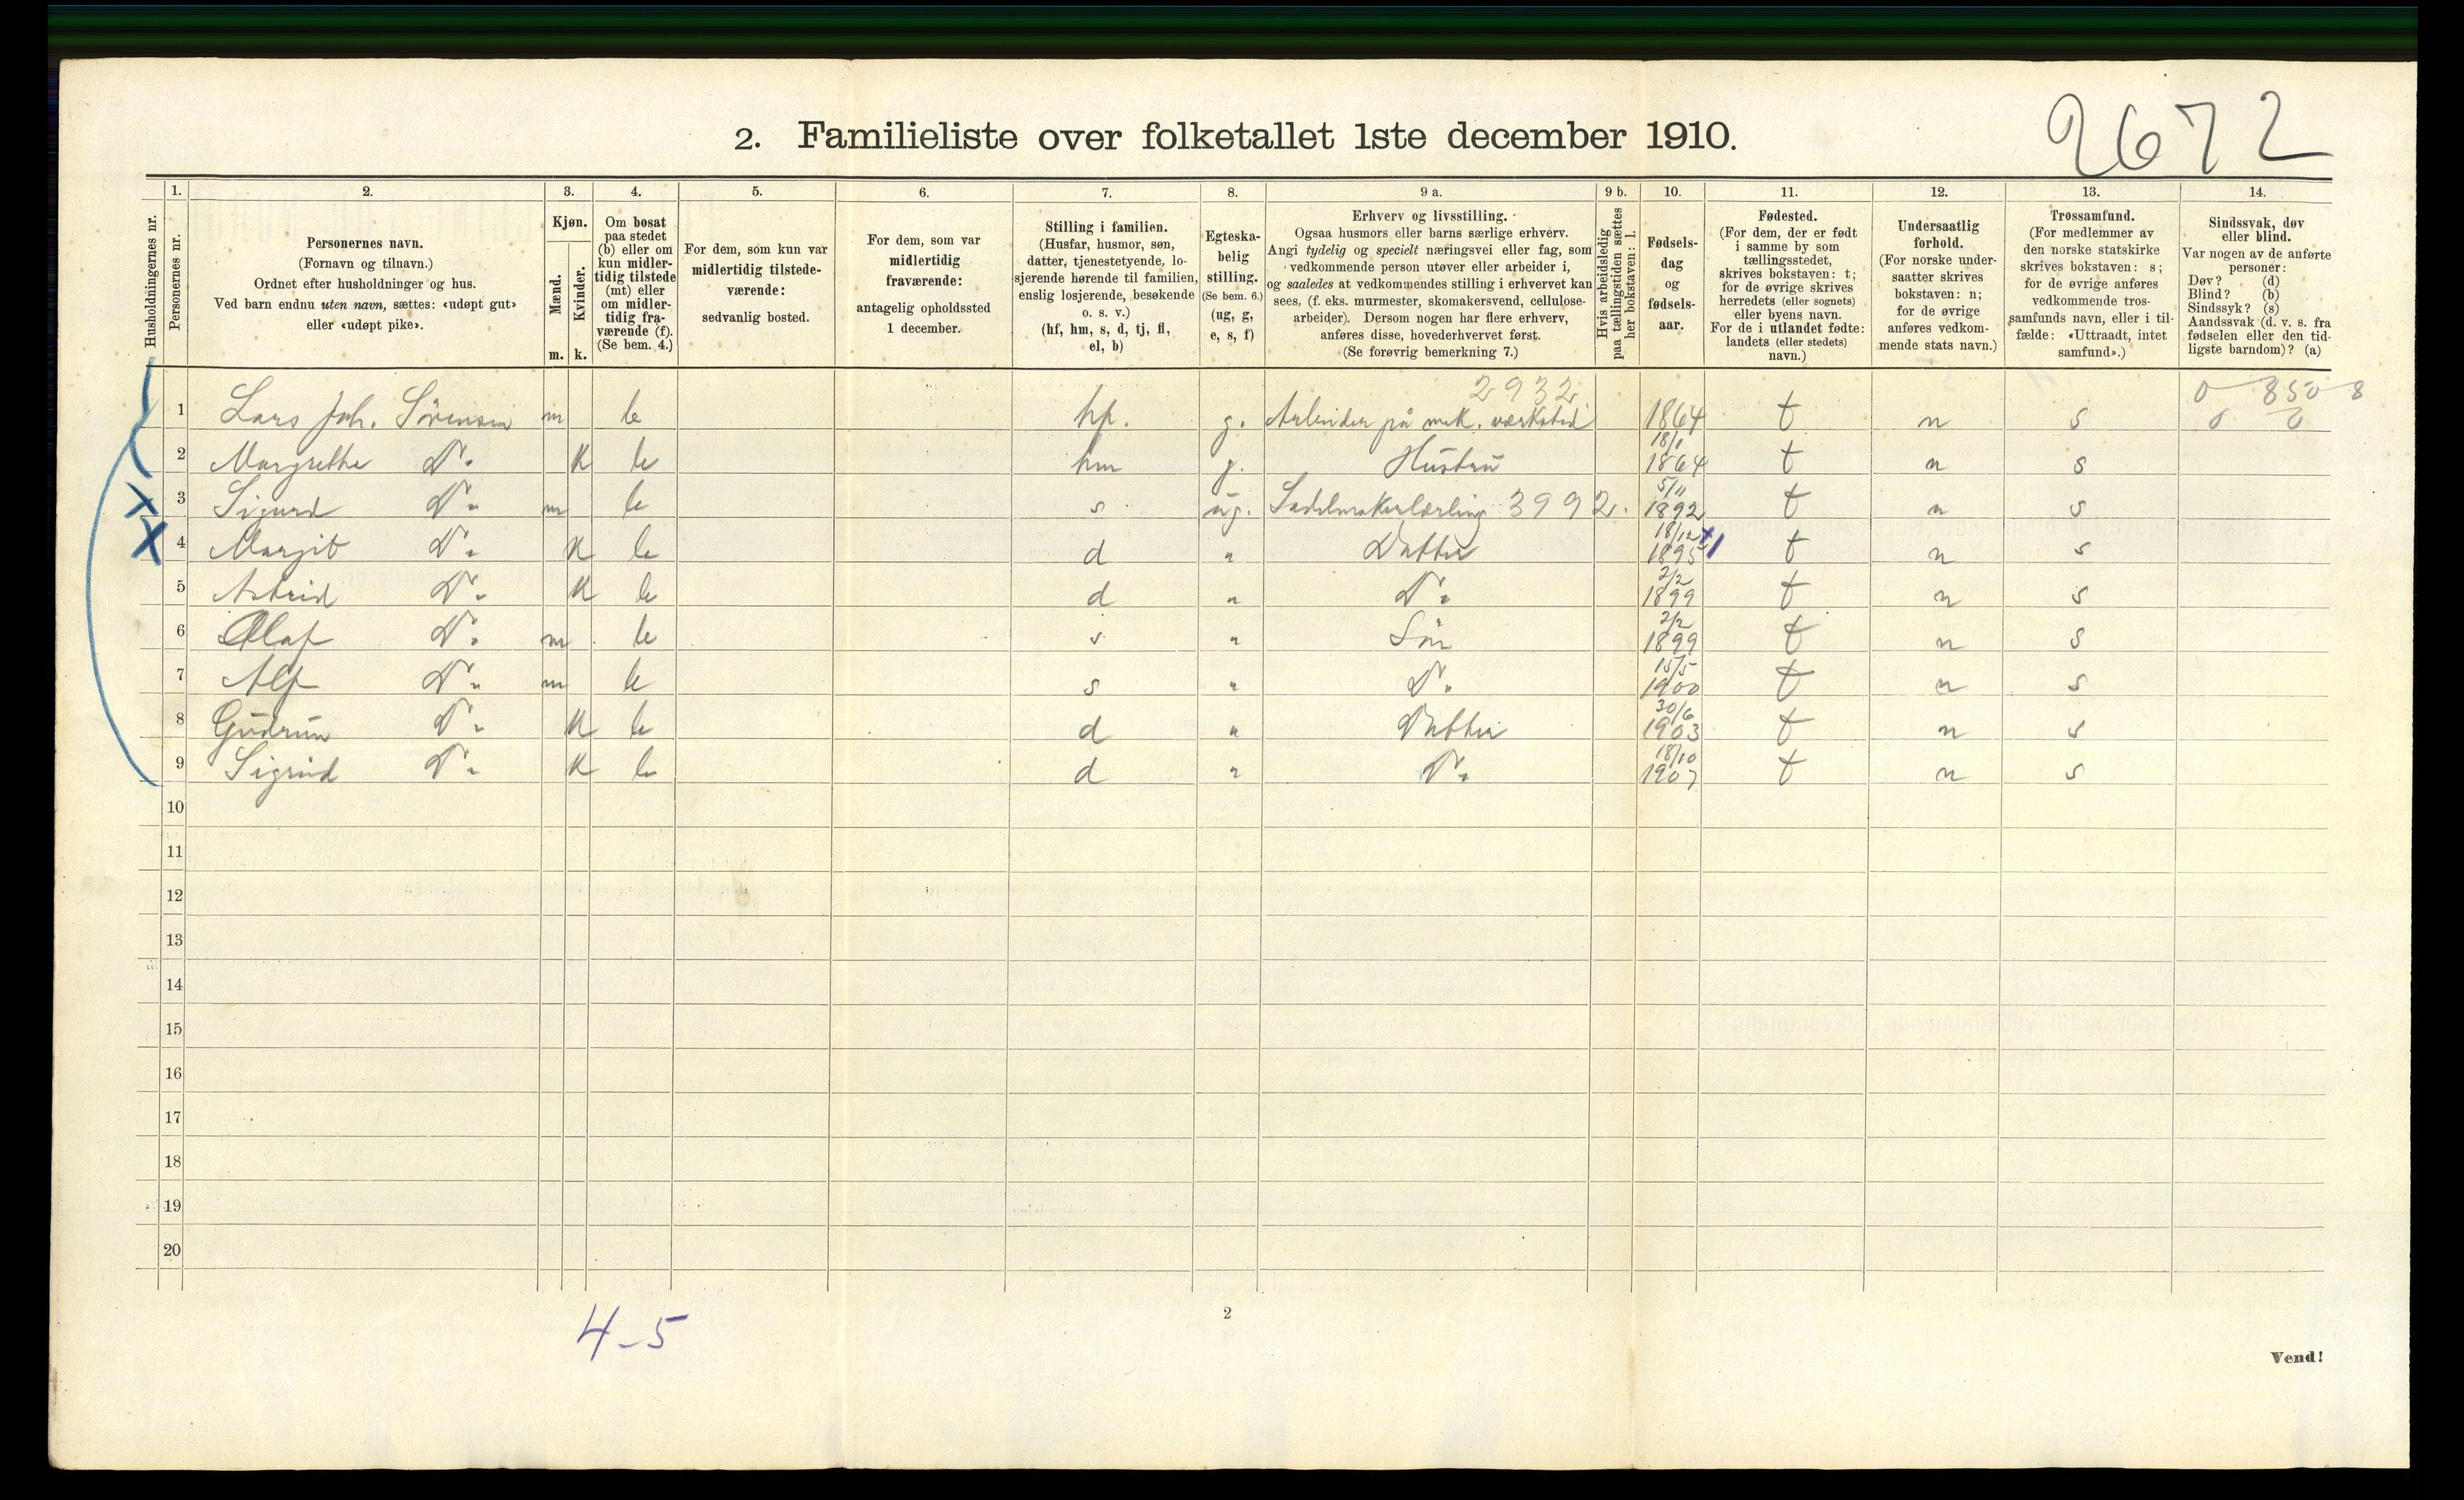 2672
2. Familieliste over folketallet 1ste december 1910.
1. 2. 3. 4. 5. 6. 7. 8. 9 a. 9 b. 10. 11. 12. 13. 14.
Husholdningernes nr.
Personernes nr.
Personernes navn.
(Fornavn og tilnavn.)
Ordnet efter husholdninger og hus.
Ved barn endnu uten navn, sættes: «udøpt gut»
eller «udøpt pike».
Kjøn.
Mænd.
m.
Kvinder.
k.
Om bosat
paa stedet
(b) eller om
kun midler-
tidig tilstede
(mt) eller
om midler-
tidig fra-
værende (f).
(Se bem. 4.)
For dem, som kun var
midlertidig tilstede-
værende:
sedvanlig bosted.
For dem, som var
midlertidig
fraværende:
antagelig opholdssted
1 december.
Stilling i familien.
(Husfar, husmor, søn,
datter, tjenestetyende, lo-
sjerende hørende til familien,
enslig losjerende, besøkende
o. s. v.)
(hf, hm, s, d, tj, fl,
el, b)
Egteska-
belig
stilling.
(Se bem. 6.)
(ug, g,
e, s, f)
Erhverv og livsstilling.
Ogsaa husmors eller barns særlige erhverv.
Angi tydelig og specielt næringsvei eller fag, som
vedkommende person utøver eller arbeider i,
og saaledes at vedkommendes stilling i erhvervet kan
sees, (f. eks. murmester, skomakersvend, cellulose-
arbeider). Dersom nogen har flere erhverv,
anføres disse, hovederhvervet først.
(Se forøvrig bemerkning 7.)
Hvis arbeidsledig
paa tællingstiden sættes
her bokstaven: l.
Fødsels-
dag
og
fødsels-
aar.
Fødested.
(For dem, der er født
i samme by som
tællingsstedet,
skrives bokstaven: t;
for de øvrige skrives
herredets (eller sognets)
eller byens navn.
For de i utlandet fødte:
landets (eller stedets)
navn.)
Undersaatlig
forhold.
(For norske under-
saatter skrives
bokstaven: n;
for de øvrige
anføres vedkom-
mende stats navn.)
Trossamfund.
(For medlemmer av
den norske statskirke
skrives bokstaven: s;
for de øvrige anføres
vedkommende tros-
samfunds navn, eller i til-
fælde: «Uttraadt, intet
samfund».)
Sindssvak, døv
eller blind.
Var nogen av de anførte
personer:
Døv? (d)
Blind? (b)
Sindssyk? (s)
Aandssvak (d. v. s. fra
fødselen eller den tid-
ligste barndom)? (a)
2932. 0 850 8
1 Lars Joh. Sörensen m b hf. g. Arbeider på mek. værksted 1864 t n s 0 0
2 Margrethe Do k b hm g. Hustru 18/1 1864 t n s
3 Sigurd Do m b s ug. Sadelmakerlærling 3992. 5/11 1892 t n s
4 Margit Do k b d " Datter 18/12 1895 t n s
5 Astrid Do k b d " Do 2/2 1899 t n s
6 Olaf Do m b s " Sön 2/2 1899 t n s
7 Alf Do m b s " Do 15/5 1900 t n s
8 Gudrun Do k b d " Datter 30/6 1903 t n s
9 Sigrid Do k b d " Do 18/10 1907 t n s
10
11
12
13
14
15
16
17
18
19
20
4-5
2
Vend!